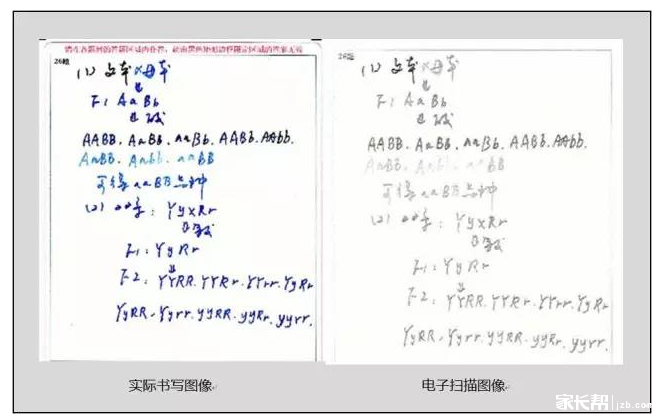 请在各题目的答题区域内作答，超出黑色矩形边框限定区域的答案无效
26题
(1) 父本×母本
F1 AaBb
AABB、AaBB、aaBb、AABb、AAbb、
AaBB、Aabb、aaBB
可得aaBB品种
(2) 亲本：Yy×Rr
F1：YyRr
F2：YYRR、YYRr、YYrr、YyRr
YyRR、Yyrr、yyRR、yyRr、yyrr.
实际书写图像
26题
(1) 父本×母本
F1 AaBb
AABB、AaBB、aaBb、AABb、AAbb、
AaBB、Aabb、aaBB
可得aaBB品种
(2) ：Yy×Rr
F1：YyRr
F2：YYRR、YYRr、YYrr、YyRr
YyRR、Yyrr、yyRR、yyRr、yyrr.
电子扫描图像
家长帮 jzb.com